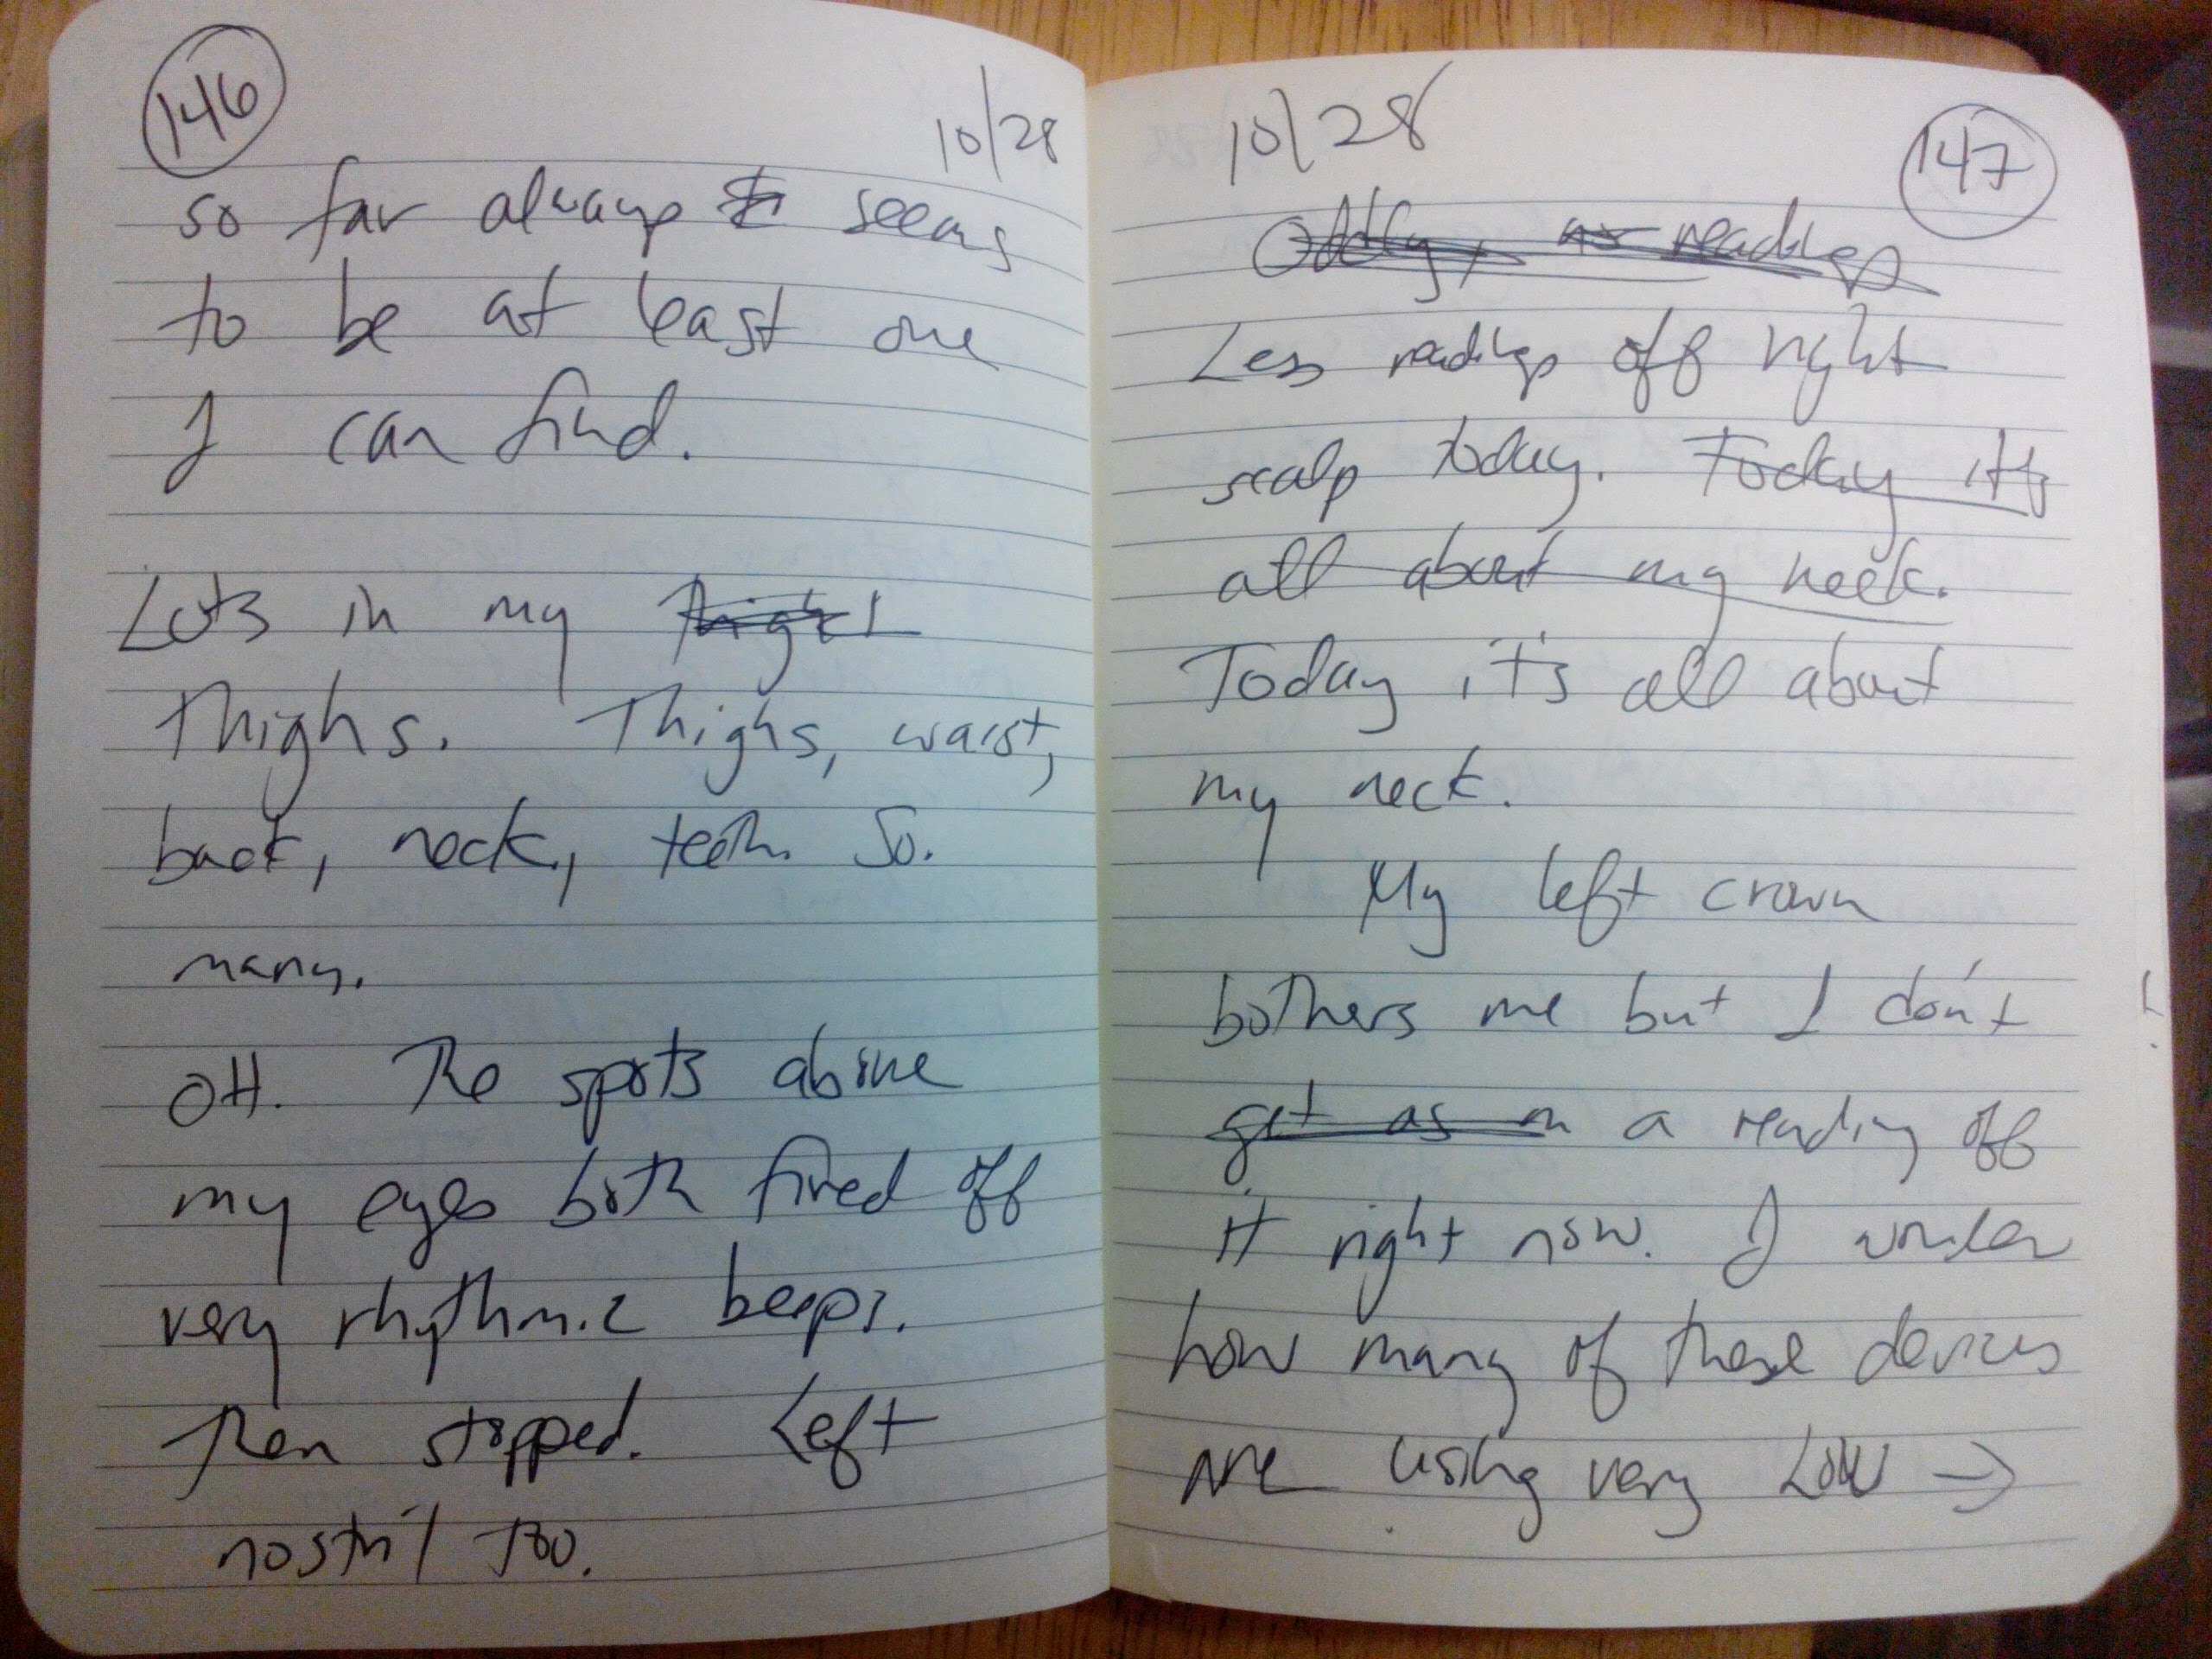 146
10/28
so far always to seems
to be at least one
I can find.
Lots in my thigh
Thighs. Thighs, waist,
back, neck, teeth. So.
many.
OH. The spots above
my eyes both fired off
very rhythmic beeps.
Then stopped. Left
nostril too.
10/28
147
Oddly, no readings
Less readings off right
scalp today. Today it's
all about my neck.
Today it's all about
my neck.
My left crown
bothers me but I don't
get as m a reading off
it right now. I wonder
how many of these devices
are using very Low →